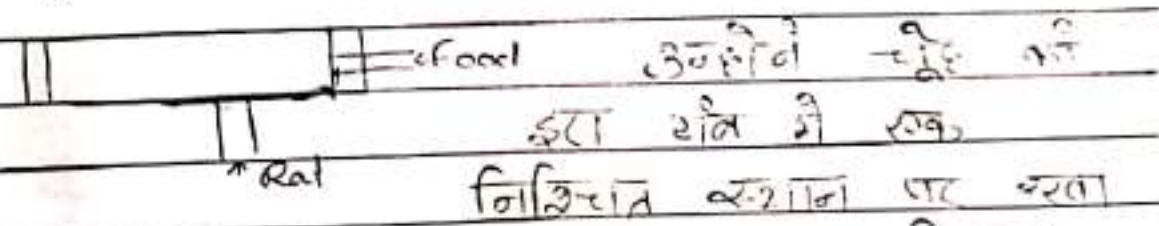 Food उन्होंने चूहे को
इस यंत्र में एक
Rat
निश्चित स्थान पर रखा